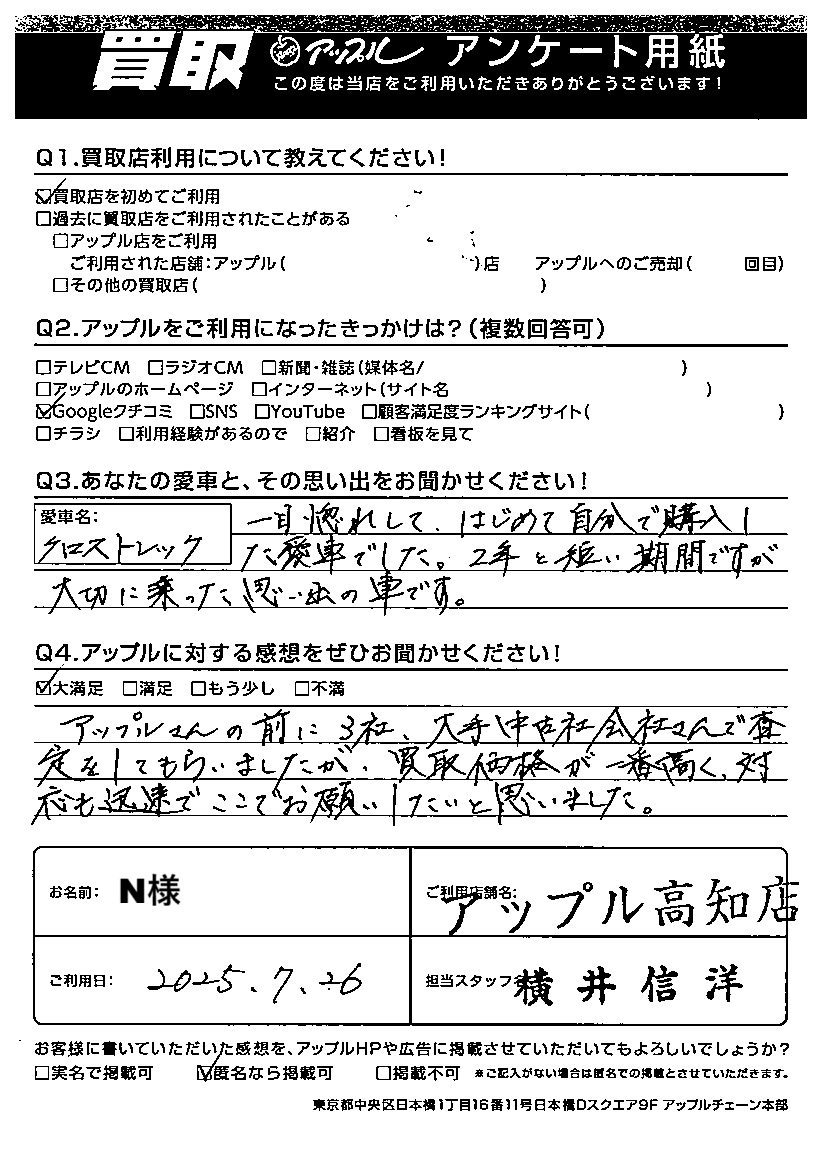 買取 アップル アンケート用紙
この度は当店をご利用いただきありがとうございます!
Q1.買取店利用について教えてください!
☑買取店を初めてご利用
□過去に買取店をご利用されたことがある
□アップル店をご利用
ご利用された店舗:アップル( )店 アップルへのご売却( 回目)
□その他の買取店( )
Q2.アップルをご利用になったきっかけは?(複数回答可)
□テレビCM □ラジオCM □新聞・雑誌(媒体名/ )
□アップルのホームページ □インターネット(サイト名 )
☑Googleクチコミ □SNS □YouTube □顧客満足度ランキングサイト( )
□チラシ □利用経験があるので □紹介 □看板を見て
Q3.あなたの愛車と、その思い出をお聞かせください!
愛車名:
クロストレック
一目惚れして、はじめて自分で購入し
た愛車でした。2年と短い期間ですが
大切に乗った思い出の車です。
Q4.アップルに対する感想をぜひお聞かせください!
☑大満足 □満足 □もう少し □不満
アップルさんの前に3社、大手中古社会社さんで査
定をしてもらいましたが、買取価格が一番高く、対
応も迅速でここでお願いしたいと思いました。
お名前: N様
ご利用店舗名: アップル高知店
ご利用日: 2025.7.26
担当スタッフ名: 横井信洋
お客様に書いていただいた感想を、アップルHPや広告に掲載させていただいてもよろしいでしょうか?
□実名で掲載可 ☑匿名なら掲載可 □掲載不可 ※ご記入がない場合は匿名での掲載とさせていただきます。
東京都中央区日本橋1丁目16番11号日本橋Dスクエア9F アップルチェーン本部